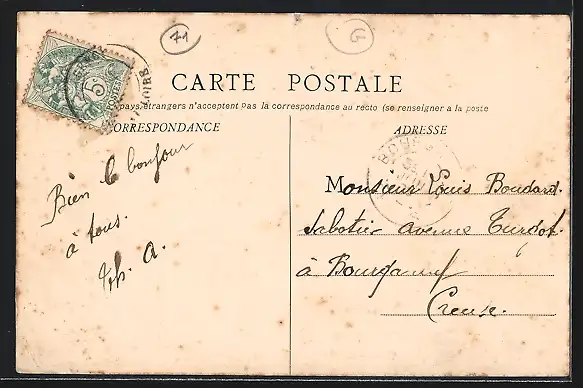 71
G
5c
CARTE POSTALE
pays étrangers n'acceptent pas la correspondance au recto (se renseigner a la poste
ORRESPONDANCE
ADRESSE
Bien le bonjour
à tous.
Th. A.
Monsieur Louis Boudard.
Sabotier avenue Turgot.
à Bourganeuf
Creuse.
BOUR